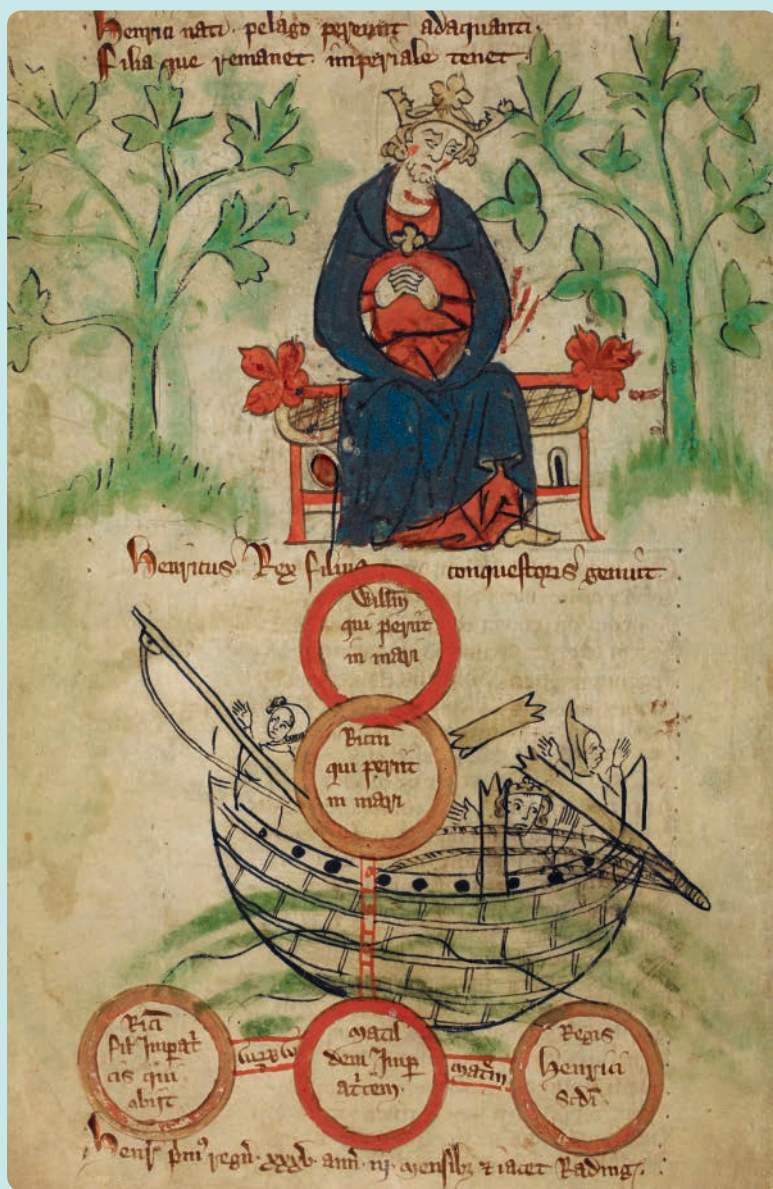 Henrici nati · pelago perierunt adaquanti ·
Filia que remanet · imperiale tenet ·
Henricus Rex filius conquestoris genuit ·
Willm
qui periit
in mari
Ricm
qui periit
in mari
Rici
fil Impat
cis qui
obijt
Matil
dem Imp
atcem ·
matrem
Regis
Henrici
Scdi ·
Henr pm regn · xxxv · ann · iii · mensib; & iacet Rading ·